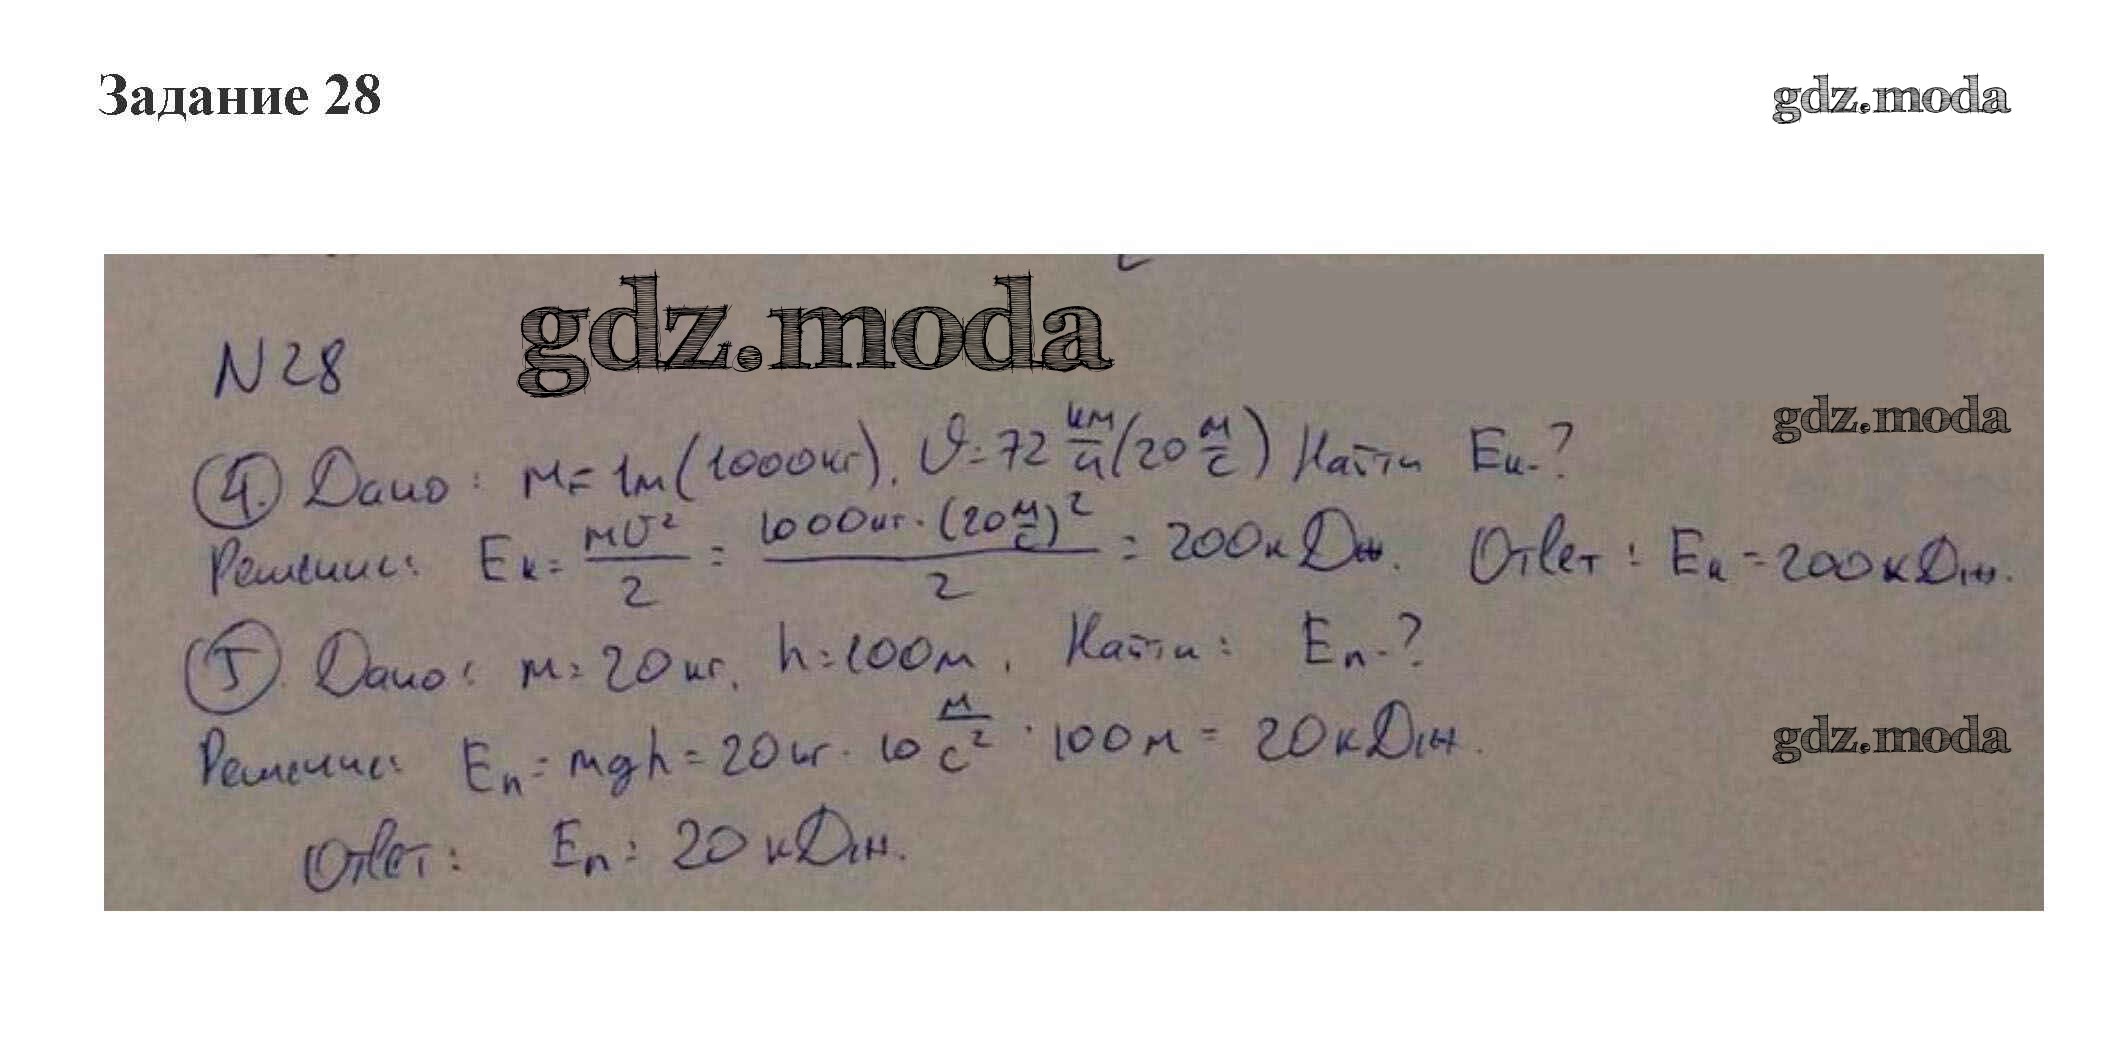 Задание 28
gdz.moda
gdz.moda
N28
gdz.moda
4. Дано: m=1т(1000кг), υ=72 км/ч (20 м/с) Найти Eк-?
Решение: Eк = mυ²/2 = 1000кг·(20 м/с)²/2 = 200кДж. Ответ: Eк=200кДж.
5. Дано: m=20кг, h=100м, Найти: Eп-?
Решение: Eп=mgh=20кг·10 м/с²·100м=20кДж.
gdz.moda
Ответ: Eп=20кДж.